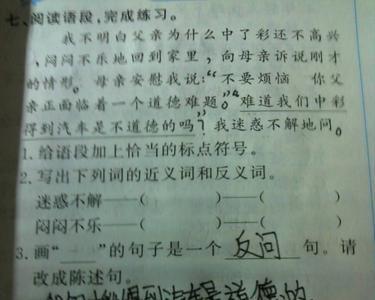 七、阅读语段,完成练习。
我不明白父亲为什么中了彩还不高兴
、闷闷不乐地回到家里,向母亲诉说刚才
的情形。母亲安慰我说:“不要烦恼 你父
亲正面临着一个道德难题。”“难道我们中彩
得到汽车是不道德的吗”?我迷惑不解地问。
1. 给语段加上恰当的标点符号。
2. 写出下列词的近义词和反义词。
迷惑不解——( )——( )
闷闷不乐——( )——( )
3. 画“____”的句子是一个 反问 句。请
改成陈述句。
得到汽车是道德的